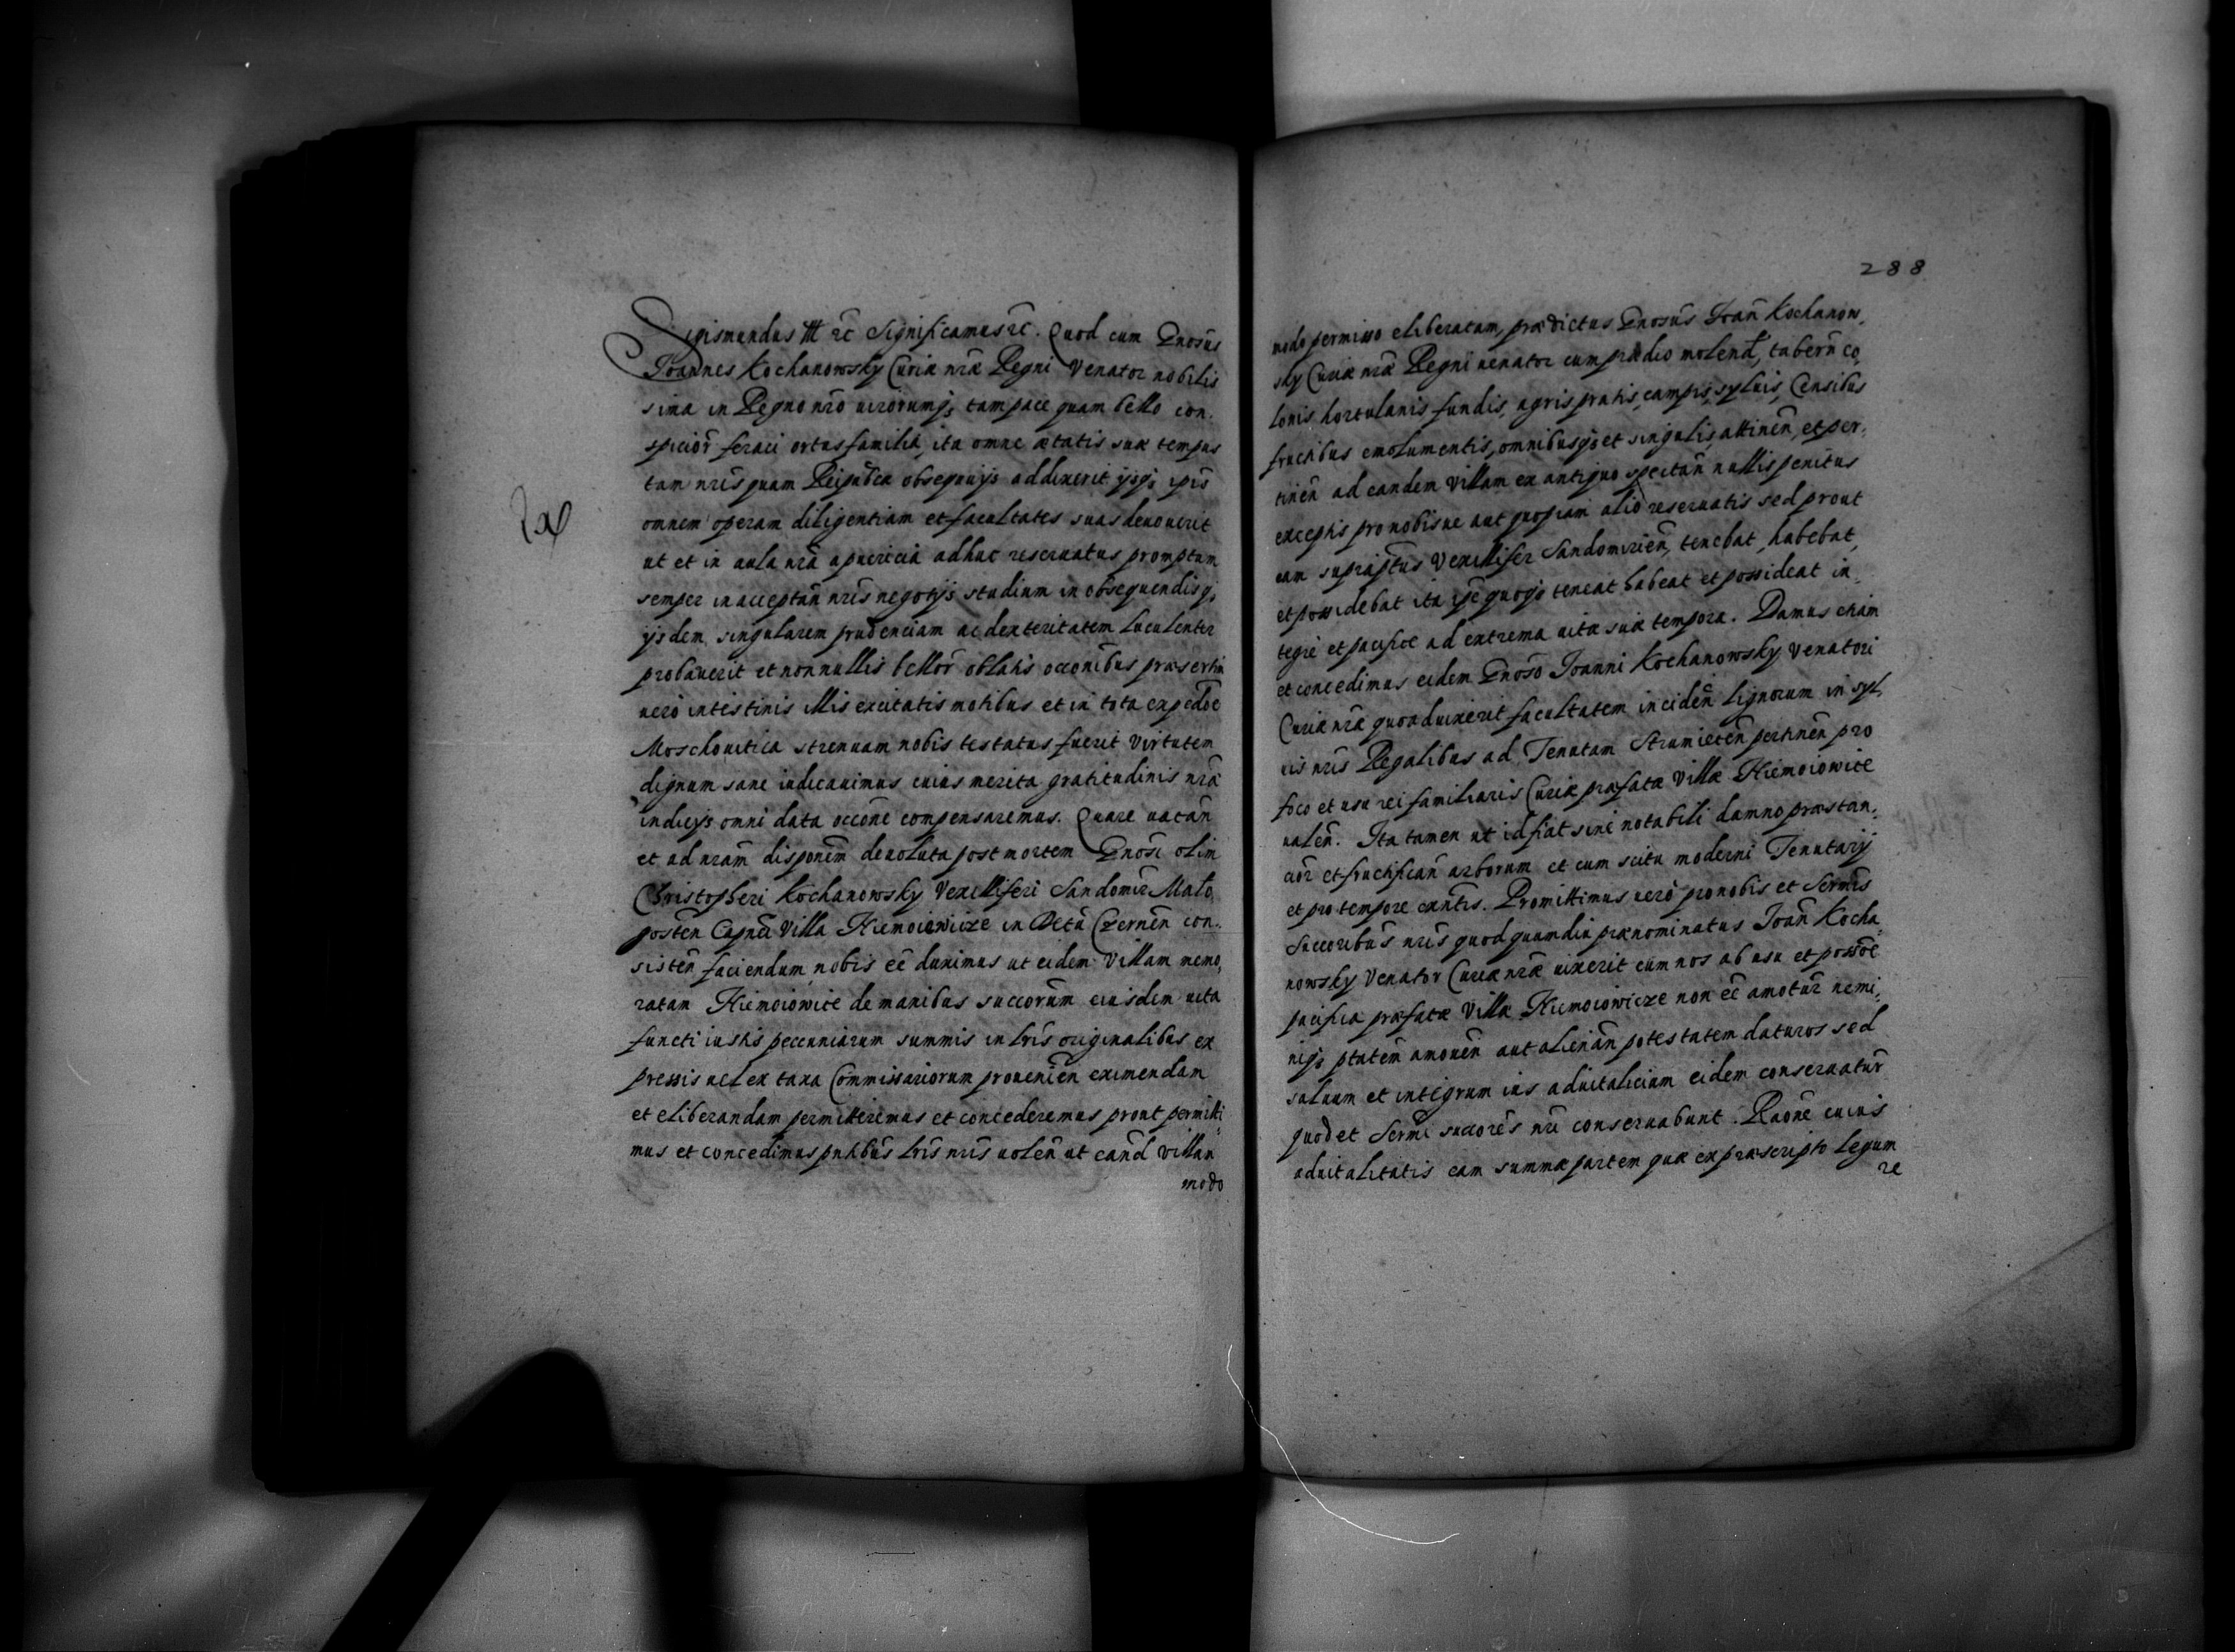 Sigismundus III rc̃ Significamus rc̃. Quod cum Gnosus
Joannes Kochanowsky Curiæ nr̃æ Regni Venator nobilis
sima in Regno nr̃o uirorumq; tam pace quam bello con:
spicior̃ feraci ortus familia, ita omne ætatis suæ tempus
tam nr̃is quam Reipub̃cæ obsequijs addixerit ijsq; ip̃is
omnem operam diligentiam et facultates suas deuouerit
ut et in aula nr̃a a puericia adhuc reseruatus promptum
semper in acceptan̄ nr̃is negotijs studium in obsequendisq;
ijsdem singularem prudenciam ac dexteritatem luculenter
probauerit et nonnullis bellor̃ oblatis occ̃onibus præsertim
uero intestinis illis excitatis motibus et in tota exped̃oe
Moschouitica strenuam nobis testatus fuerit virtutem
dignum sane iudicauimus cuius merita gratitudinis nr̃æ
indicijs omni data occ̃one compensaremus. Quare uacan̄
et ad nr̃am dispon̄em deuoluta post mortem Gnosi olim
Christopheri Kochanowsky Vexilliferi Sandomir̃ Mało
gosten̄ Capnei Villa Niemoiowicze in Dctũ Czernen̄ con:
sisten̄ faciendum nobis eẽ duximus ut eidem Villam memo,
ratam Niemoiowice de manibus succorum eiusdem uita
functi iustis pecuniarum summis in lr̃is originalibus ex
pressis uel ex taxa Commissariorum prouenien̄ eximendam
et eliberandam permitteremus et concederemus prout permitti
mus et concedimus pn̄tibus lr̃is nr̃is uolen̄ ut eand̃ villam
modo
288
modo permisso eliberatam, prædictus Gnosus Joan̄ Kochanow,
sky Curiæ nr̃æ Regni uenator cum prædio molend̃, tabern̄ co
lonis hortulanis fundis, agris pratis, campis, syluis, Censibus
fructibus emolumentis, omnibusq; et singulis attinen̄, et per:
tinen̄ ad eandem villam ex antiquo spectan̄ nullis penitus
exceptis pro nobisue aut quopiam alio reseruatis sed prout
eam suprap̃tus Vexillifer Sandomirien̄, tenebat, habebat,
et possidebat ita ip̃e quoq; teneat habeat et possideat in
tegre et pacifice ad extrema uitæ suæ tempora. Damus etiam
et concedimus eidem Gnoso Joanni Kochanowsky Venatori
Curiæ nr̃æ quoad uixerit facultatem inciden̄ lignorum in syl,
uis nr̃is Regalibus ad Tenutam Strumiecen̄ pertinen̄ pro
foco et usu rei familiaris Curiæ præfatæ Villæ Niemoiowice
ualen̄. Ita tamen ut id fiat sine notabili damno præstan:
cior̃ et fructifican̄ arborum et cum scitu moderni Tenutarij
et pro tempore exn̄tis. Promittimus uero pro nobis et Serm̄is
Succoribus nr̃is quod quamdiu prænominatus Joan̄ Kocha
nowsky Venator Curiæ nr̃æ uixerit eum nos ab usu et poss̃oe
pacifica præfatæ Villæ Niemoiowicze non eẽ amotur̃ nemi,
niq; p̃tatem amouen̄ aut alienan̄ potestatem daturos sed
saluum et integrum ius aduitalicium eidem conseruatur̃
quod et Serm̄i succores nr̃i conseruabunt. Raõne cuius
aduitalitatis eam summæ partem quæ ex præscripto legum
re